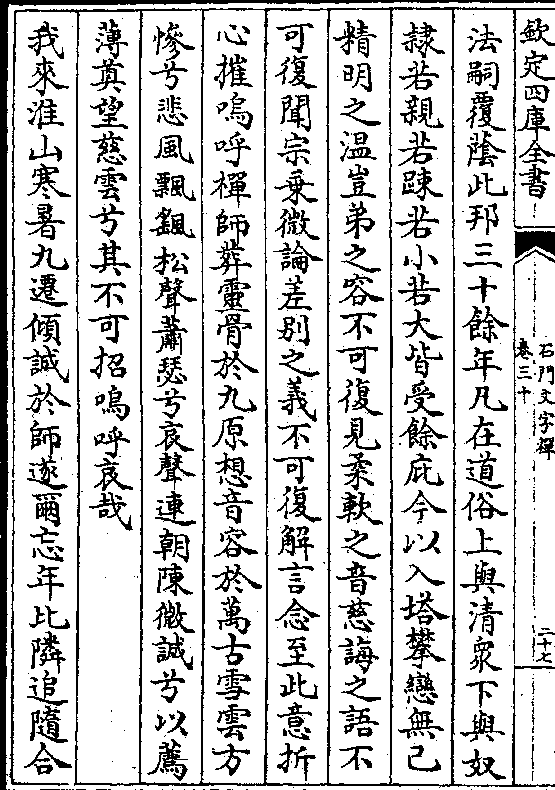 欽定四庫全書
石門文字禪
卷三十
二十七
法嗣覆蔭此邦三十餘年凡在道俗上與清衆下與奴
隸若親若踈若小若大皆受餘庇今以入塔攀戀無已
精明之温豈弟之容不可復見柔軟之音慈誨之語不
可復聞宗乗微論差别之義不可復解言念至此意折
心摧嗚呼禪師葬靈骨於九原想音容於萬古雪雲方
慘兮悲風飄飄松聲蕭瑟兮哀聲連朝陳微誠兮以薦
薄奠望慈雲兮其不可招嗚呼哀哉
我來淮山寒暑九遷傾誠於師遂爾忘年比隣追隨合